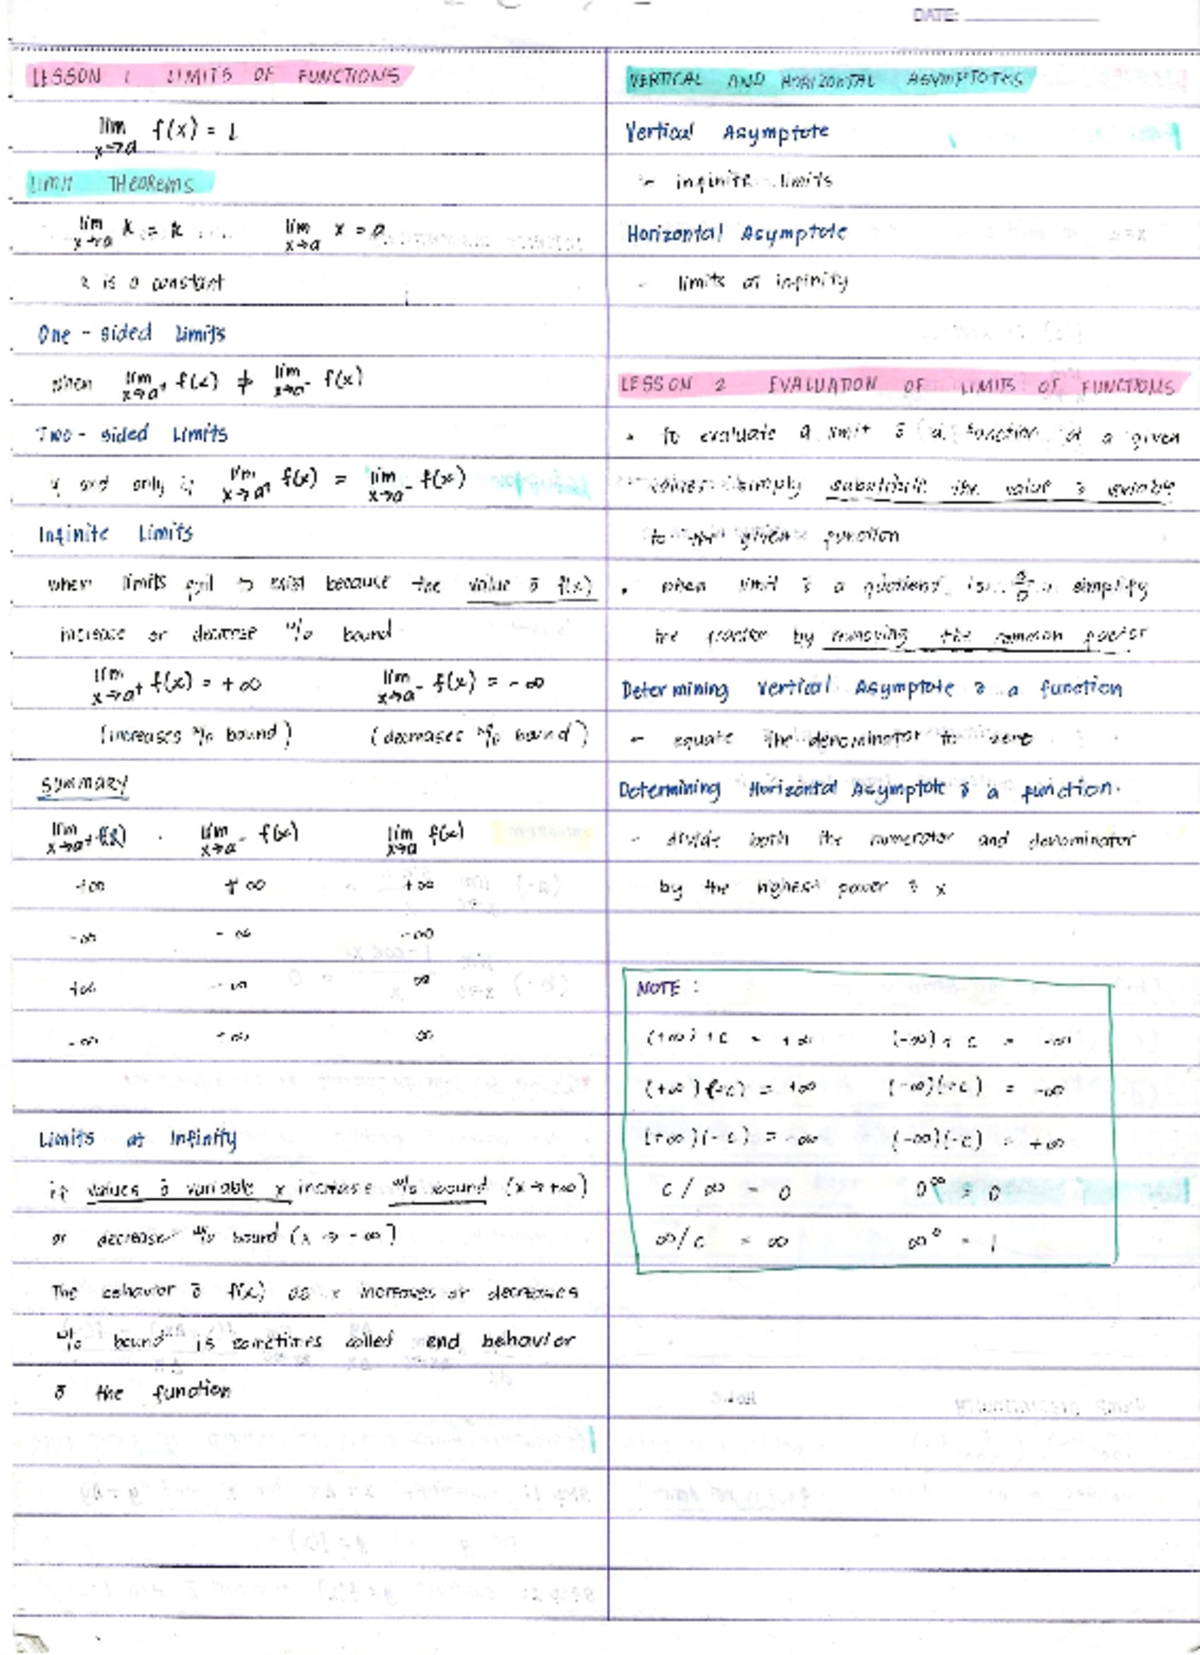 DATE:
LESSON 1 LIMITS OF FUNCTIONS
lim x→a f(x) = L
LIMIT THEOREMS
lim x→a k = k lim x→a x = a
k is a constant
One - sided Limits
when lim x→a+ f(x) ≠ lim x→a- f(x)
Two - sided Limits
if and only if lim x→a+ f(x) = lim x→a- f(x)
Infinite Limits
when limits fail to exist because the value of f(x)
increase or decrease w/o bound
lim x→a+ f(x) = +∞ lim x→a- f(x) = -∞
(increases w/o bound) (decreases w/o bound)
SUMMARY
lim x→a+ f(x) lim x→a- f(x) lim x→a f(x)
+∞ +∞ +∞
-∞ -∞ -∞
+∞ -∞ ∞
-∞ -∞ ∞
Limits at Infinity
if values of variable x increase w/o bound (x→+∞)
or decrease w/o bound (x→ -∞)
The behavior of f(x) as x increases or decreases
w/o bound is sometimes called end behavior
of the function
VERTICAL AND HORIZONTAL ASYMPTOTES
Vertical Asymptote
- infinite limits
Horizontal Asymptote
- limits at infinity
LESSON 2 EVALUATION OF LIMITS OF FUNCTIONS
• to evaluate a limit of a function at a given
values simply substitute the value of variable
to the given function
• when limit of a quotient is 0/0 simplify
the fraction by removing the common factor
Determining Vertical Asymptote of a function
- equate the denominator to zero
Determining Horizontal Asymptote of a function.
- divide both the numerator and denominator
by the highest power of x
NOTE :
(+∞) + c = +∞ (-∞) + c = -∞
(+∞)(+c) = +∞ (-∞)(+c) = -∞
(+∞)(-c) = -∞ (-∞)(-c) = +∞
c / ∞ = 0 0^∞ = 0
∞/c = ∞ ∞^0 = 1